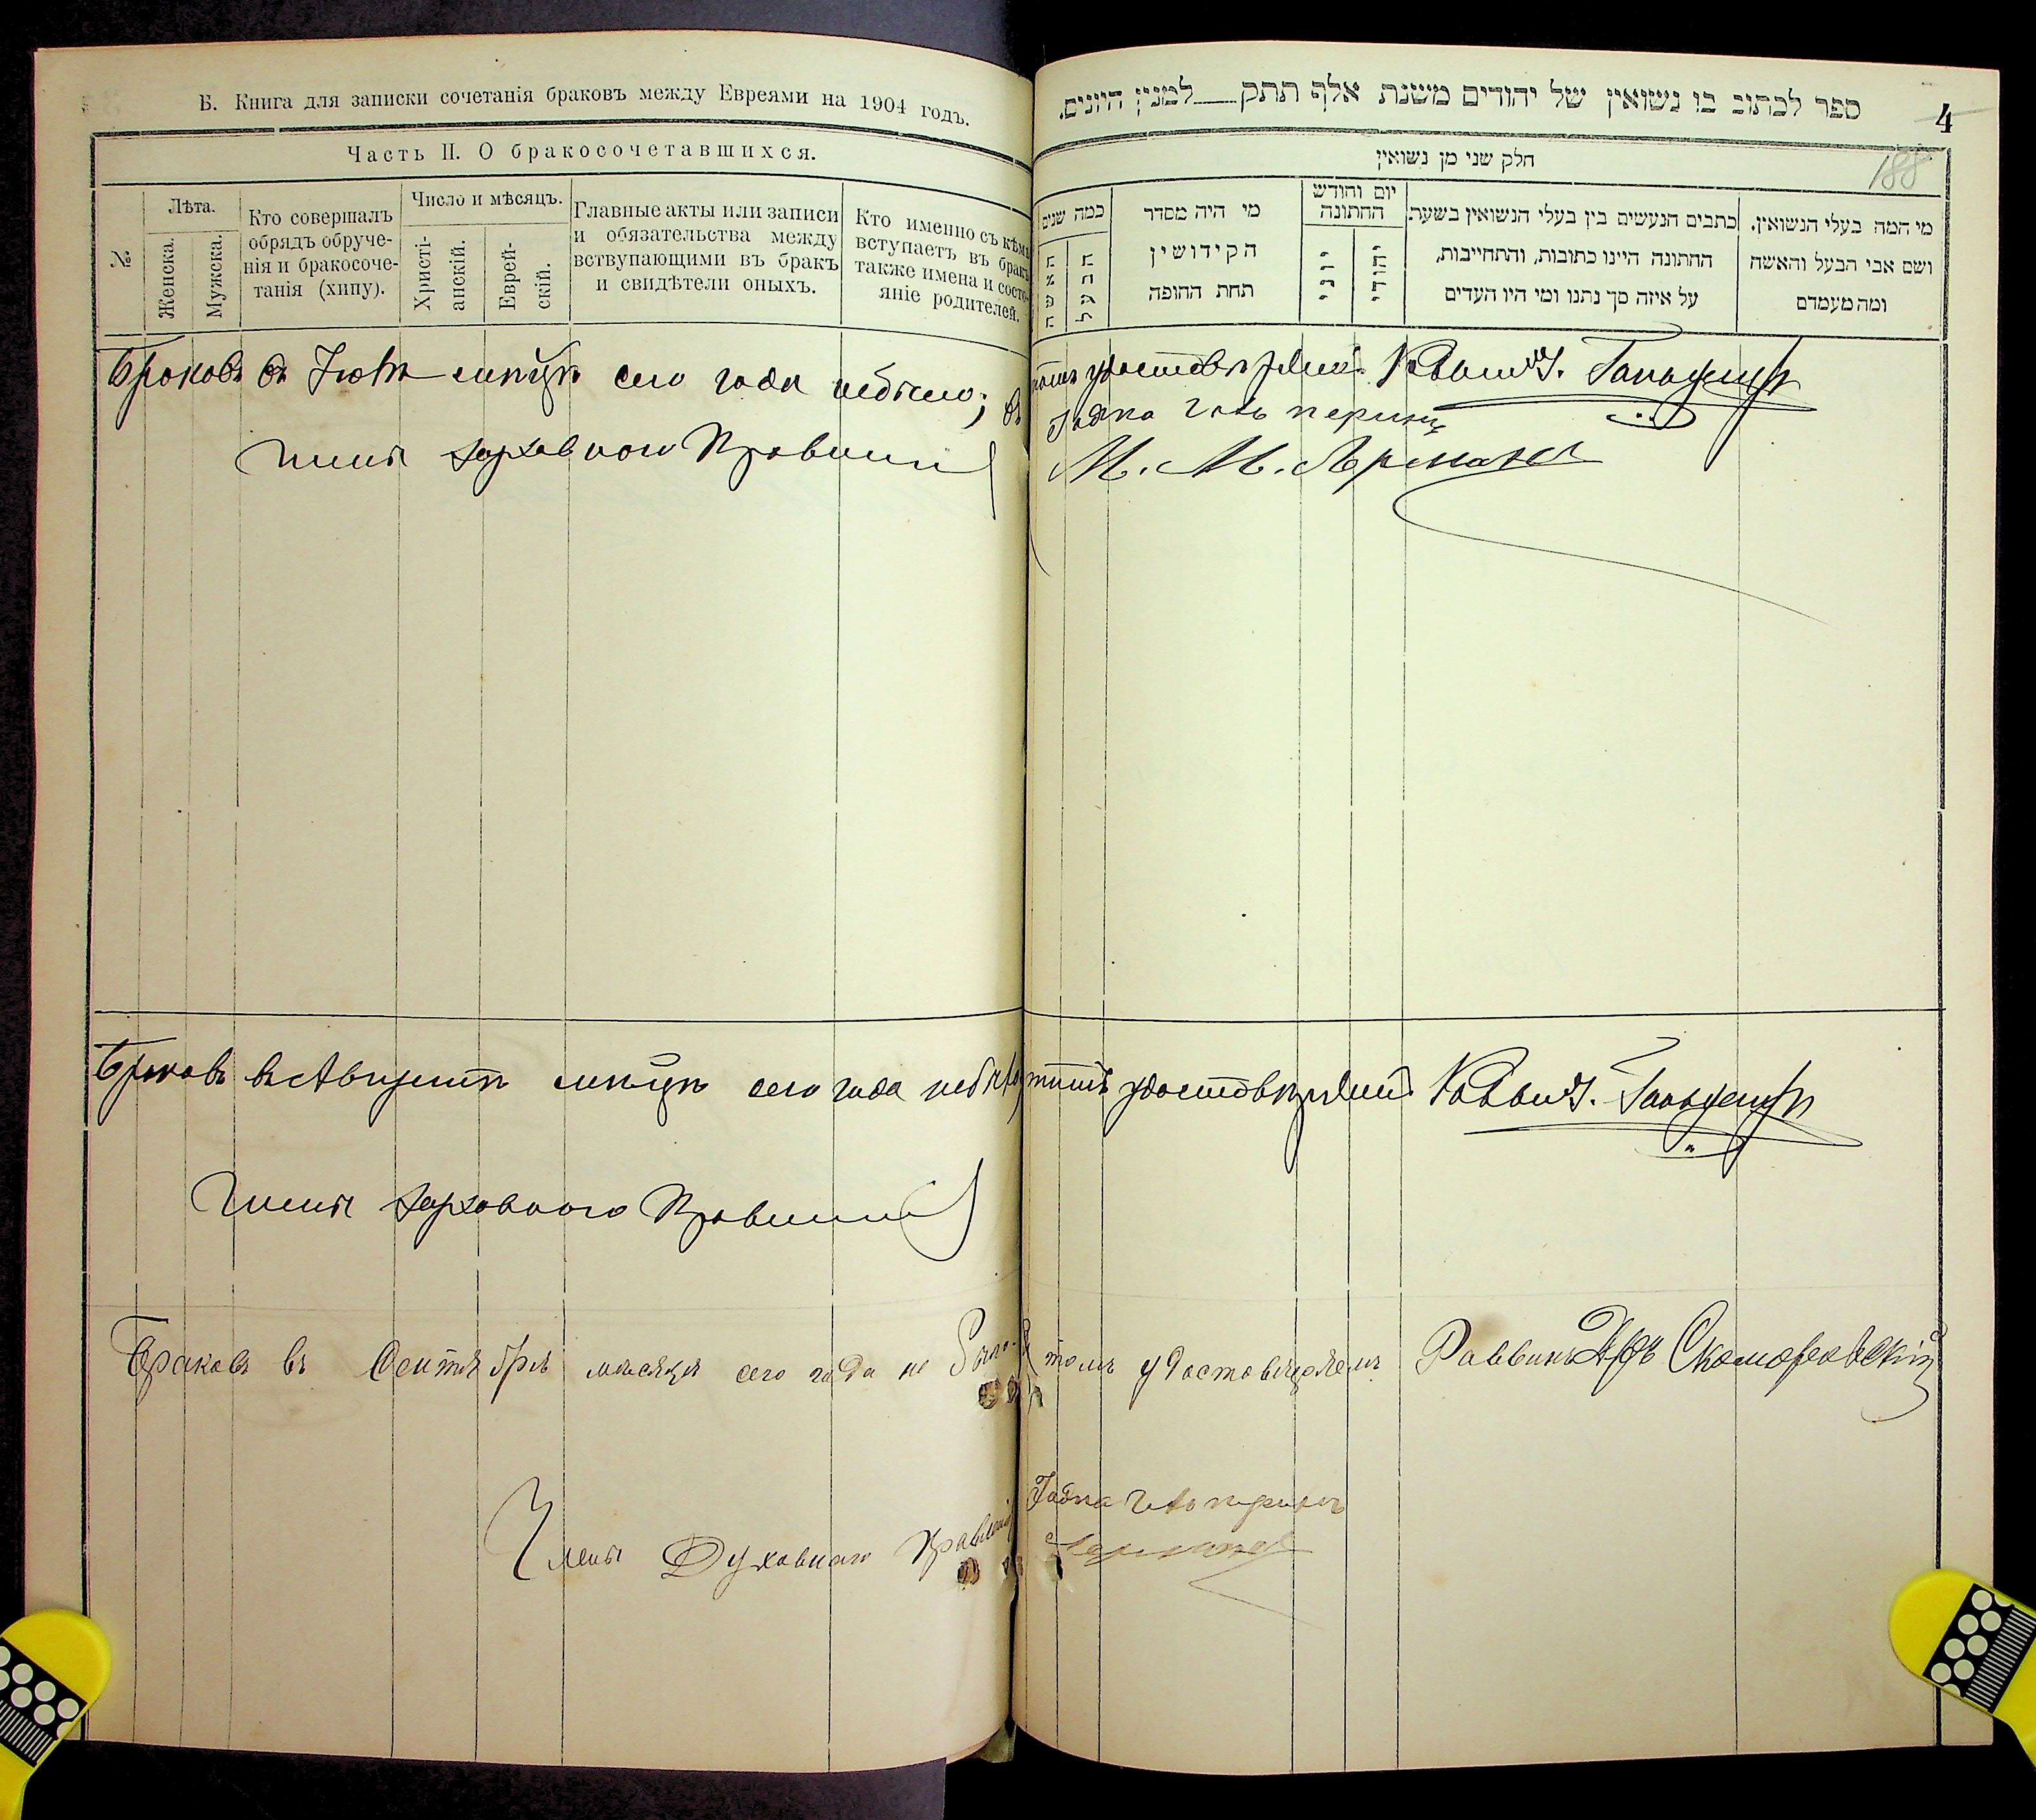 Б. Книга для записки сочетанія браковъ между Евреями на 1904 годъ.
Часть II. О бракосочетавшихся.
№
Лѣта.
Женска.
Мужска.
Кто совершалъ
обрядъ обруче-
нія и бракосоче-
танія (хипу).
Число и мѣсяцъ.
Христі-
анскій.
Еврей-
скій.
Главные акты или записи
и обязательства между
вствупающими въ бракъ
и свидѣтели оныхъ.
Кто именно съ кѣмъ
вступаетъ въ бракъ
также имена и состо-
яніе родителей.
ספר לכתוב בו נשואין של יהודים משנת אלף תתק___למנין היונים.
4
188
חלק שני מן נשואין
כמה שנים
האשה
הבעל
מי היה מסדר
הקידושין
תחת החופה
יום וחודש
החתונה
יוני
יהודי
כתבים הנעשים בין בעלי הנשואין בשעת
החתונה היינו כתובות, והתחייבות,
על איזה סך נתנו ומי היו העדים
מי המה בעלי הנשואין.
ושם אבי הבעל והאשה
ומה מעמדם
Браковъ въ Іюлѣ мѣсяцѣ сего года не было; въ томъ удостовѣряемъ
Члены духовного Правленія
М. М.
Браковъ въ Августѣ мѣсяцѣ сего года не было томъ удостовѣряемъ
Члены духовного Правленія
Браковъ въ Сентябрѣ мѣсяцѣ сего года не было въ томъ удостовѣряемъ Раввинъ Скоморовскій
Члены Духовнаго Правленія